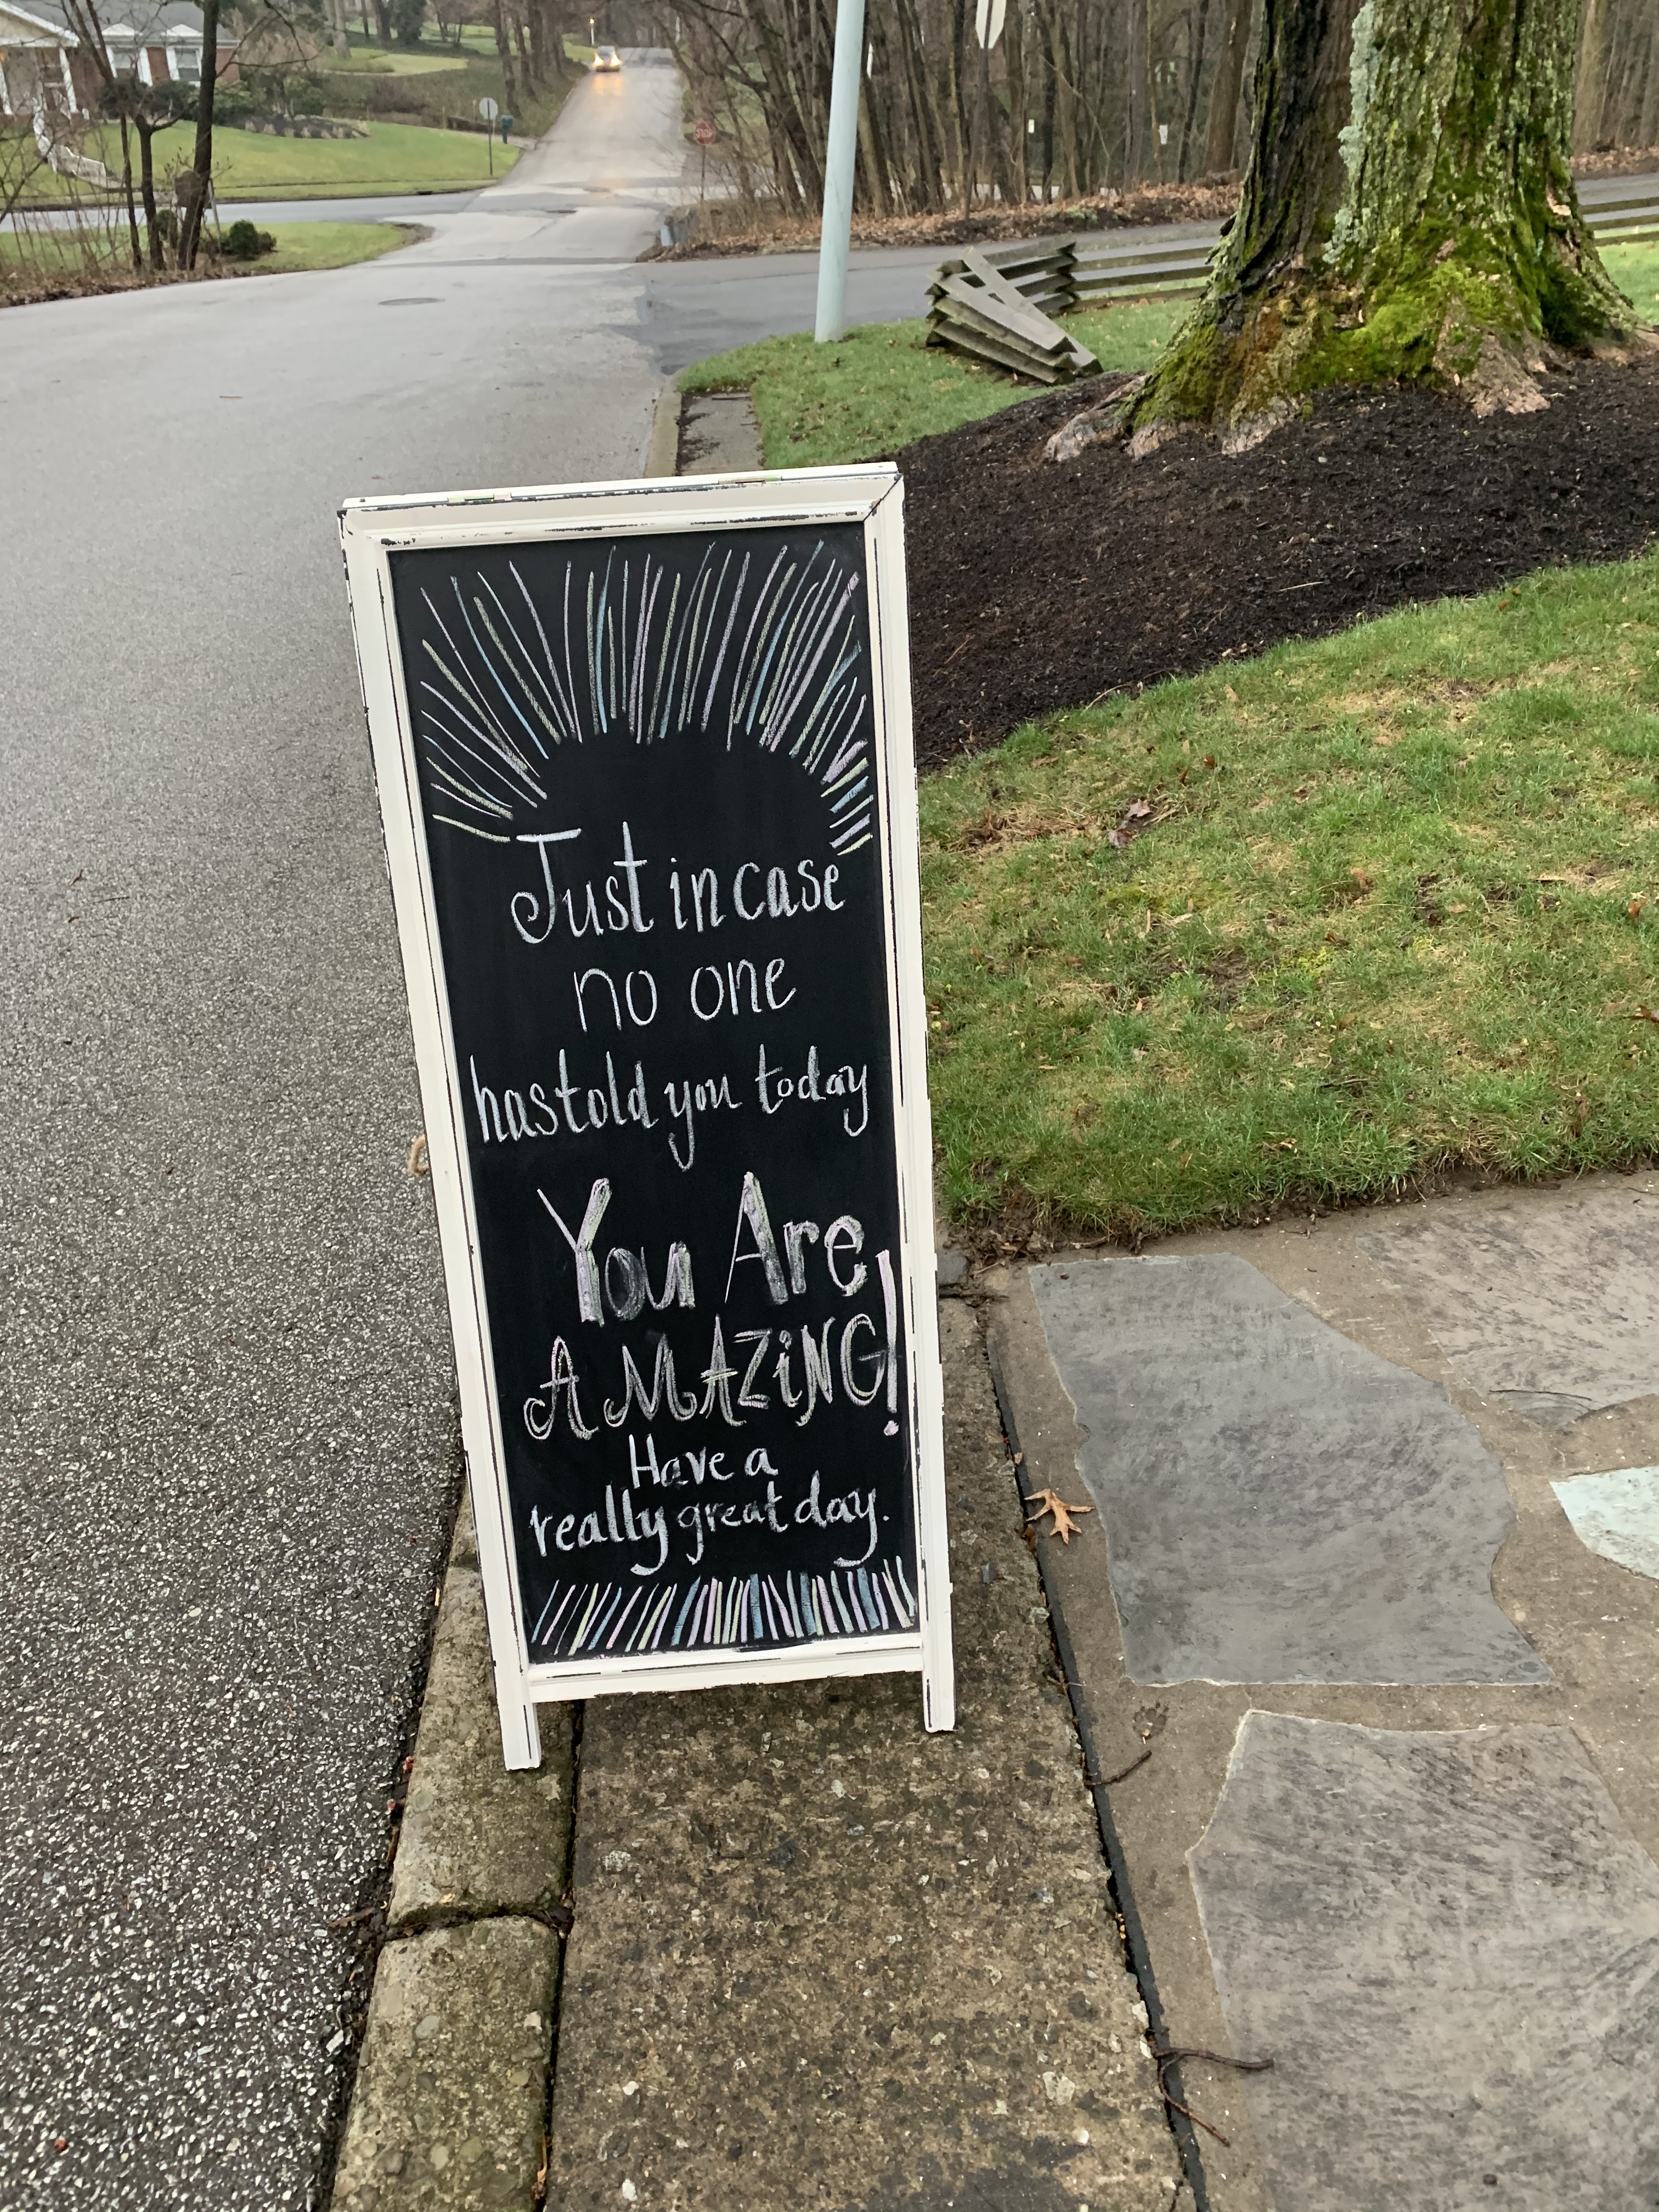 Just in case
no one
has told you today
You Are
AMAZiNG!
Have a
really great day.